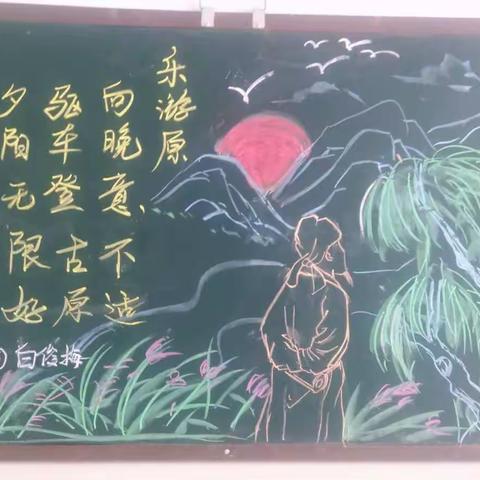 乐游原
向晚意、不适
驱车登古原
夕阳无限好
白俊梅